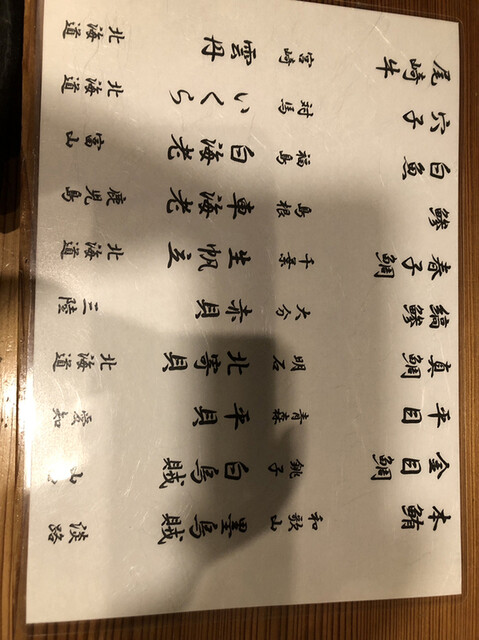 本鮪 和歌山
金目鯛 銚子
平目 青森
真鯛 明石
縞鯵 大分
春子鯛 千葉
鯵 島根
白魚 福島
穴子 対馬
尾崎牛 宮崎
墨烏賊 淡路
白烏賊
平貝 愛知
北寄貝 北海道
赤貝 三陸
生帆立 北海道
車海老 鹿児島
白海老 富山
いくら 北海道
雲丹 北海道